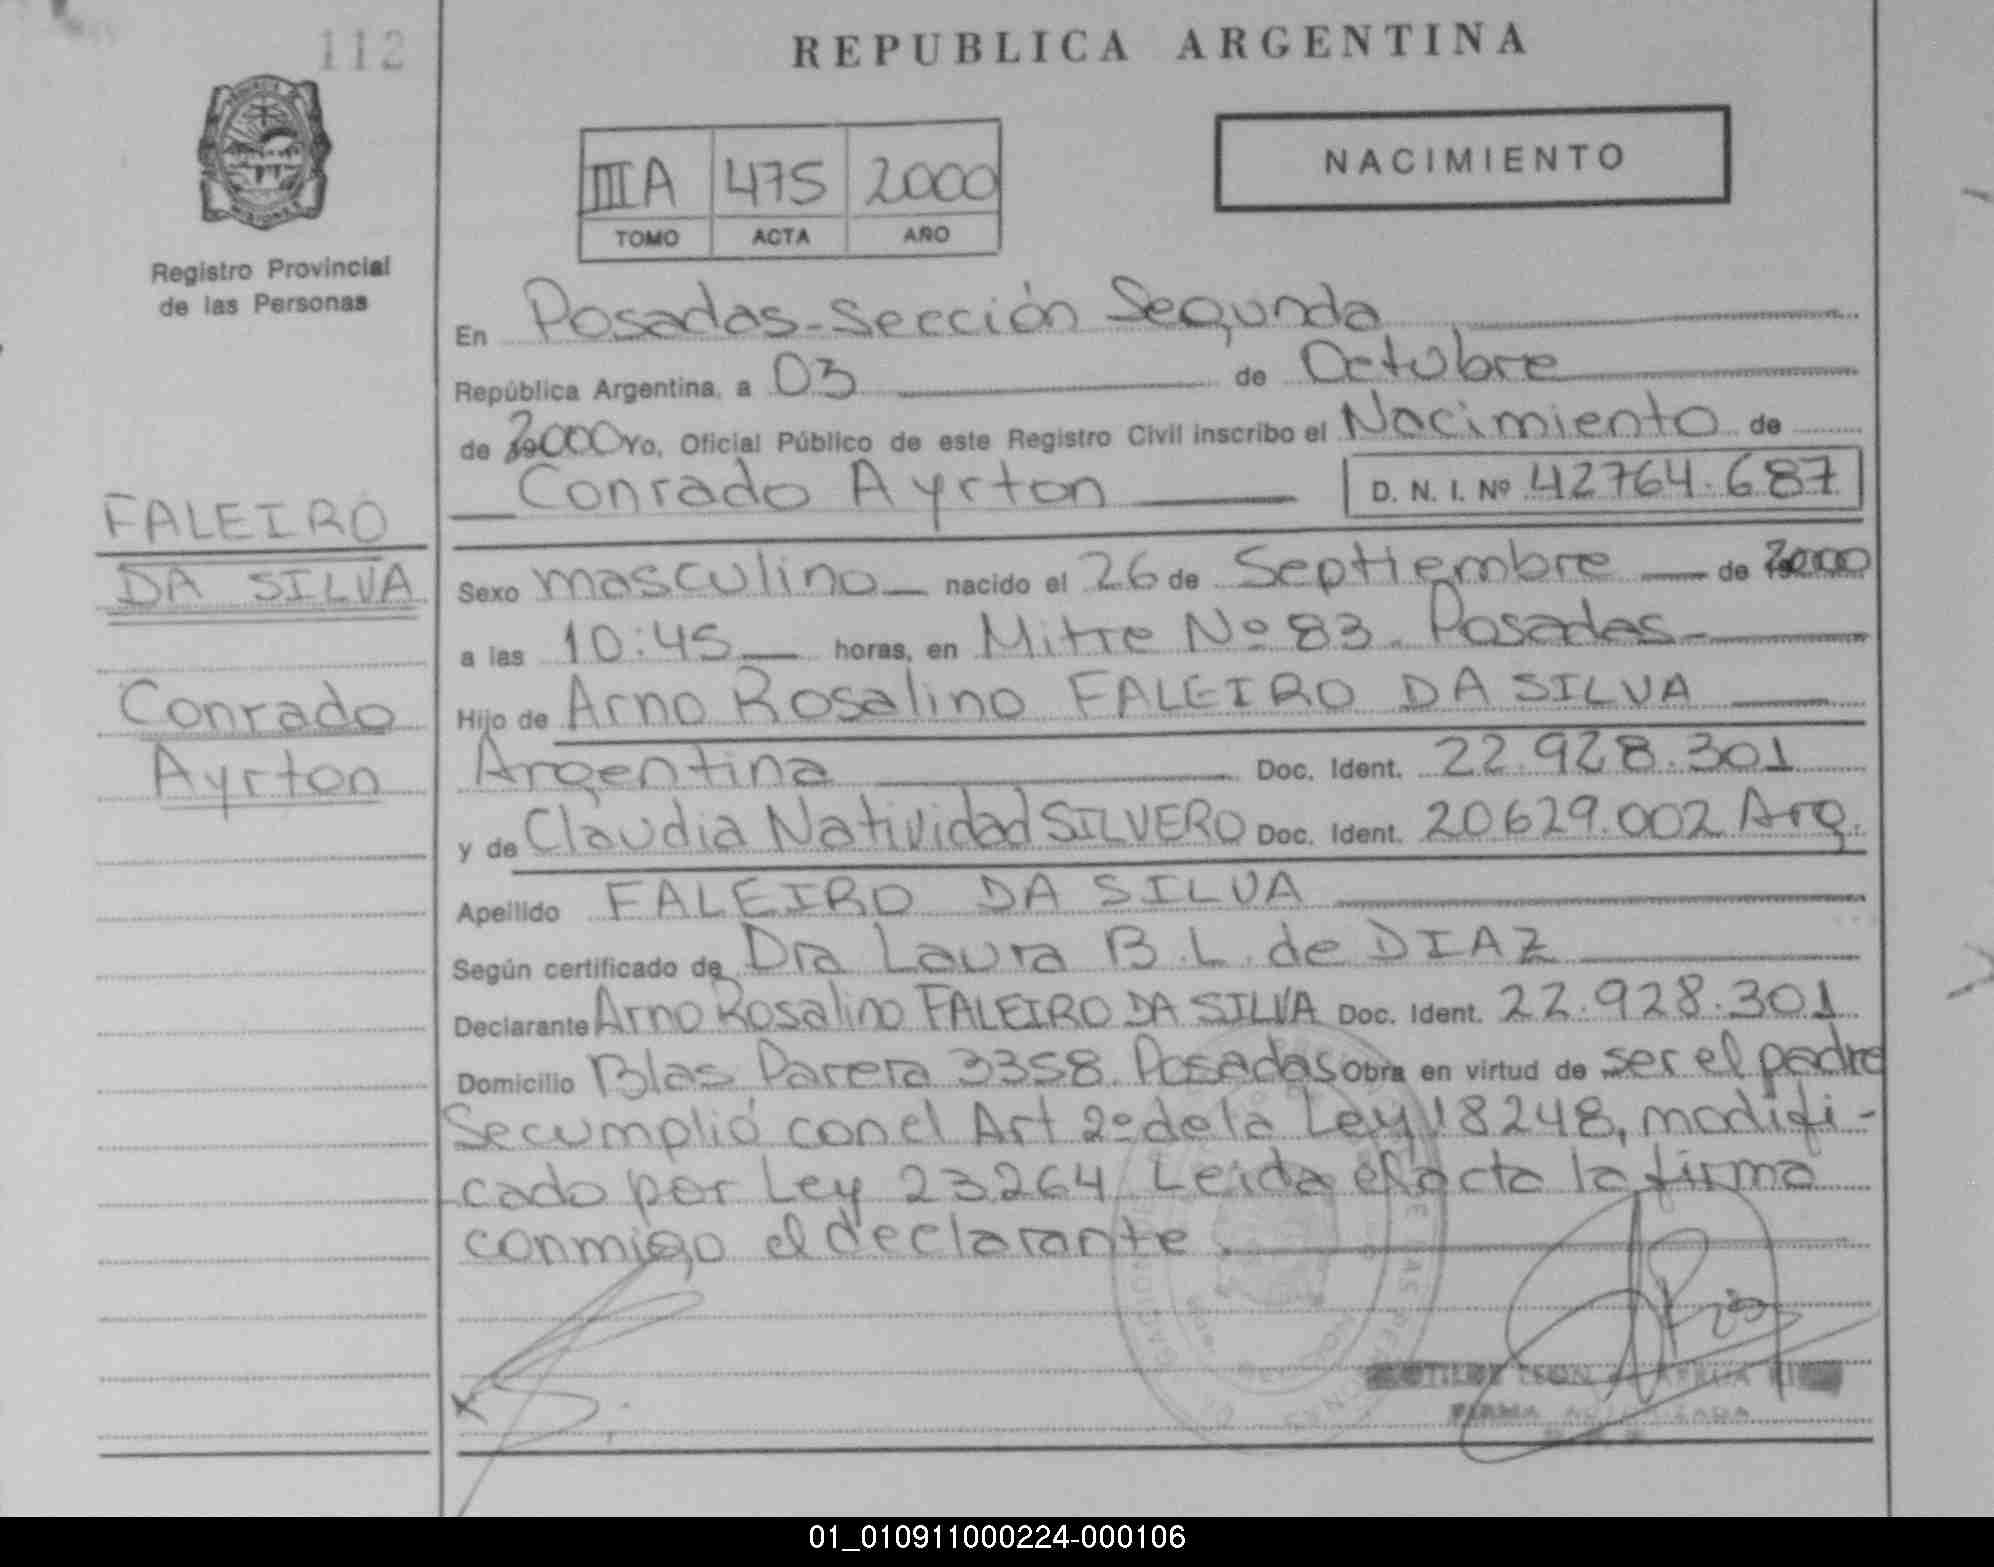 112
REPUBLICA ARGENTINA
NACIMIENTO
IIIA 475 2000
TOMO ACTA AÑO
Registro Provincial
de las Personas
En Posadas - Sección Segunda
República Argentina, a 03 de Octubre
de 2000 Yo, Oficial Público de este Registro Civil inscribo el Nacimiento de
Conrado Ayrton D. N. I. Nº 42764.687
FALEIRO
DA SILVA
Conrado
Ayrton
Sexo masculino nacido el 26 de Septiembre de 2000
a las 10:45 horas, en Mitre Nº 83. Posadas
Hijo de Arno Rosalino FALEIRO DA SILVA
Argentina Doc. Ident. 22.928.301
y de Claudia Natividad SILVERO Doc. Ident. 20629.002 Arg.
Apellido FALEIRO DA SILVA
Según certificado de Dra Laura B. L. de DIAZ
Declarante Arno Rosalino FALEIRO DA SILVA Doc. Ident. 22.928.301
Domicilio Blas Parera 3358. Posadas Obra en virtud de ser el padre
Se cumplió con el Art 2º de la Ley 18248, modifi-
cado por Ley 23264 Leida el acta la firma
conmigo el declarante.
01_010911000224-000106